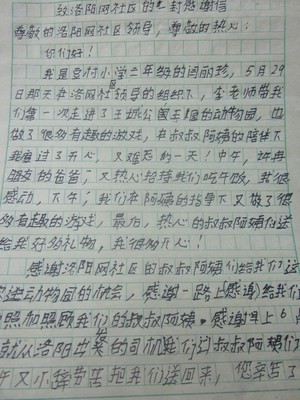 致洛阳网社区的一封感谢信
尊敬的洛阳网社区领导,尊敬的热心:
你们好!
我是党村小学二年级的闫丽珍,5月29
日那天在洛网社区领导的组织下,李老师带我
们第一次走进了王城公园美丽的动物园,也
做了很多有趣的游戏,在叔叔阿姨的陪伴下
我度过了开心 又难忘的一天!中午,
的爸爸,又热心招待我们吃午饭,我很
感动,下午;我们在阿姨的指导下又做了很
多有趣的游戏,最后,热心的叔叔阿姨们送
给我好多礼物,我很开心!
感谢洛阳网社区的叔叔阿姨们给我们这
次进动物园的机会,感谢一路上感谢给我们
照加照顾我们的叔叔阿姨。感谢早上6点
就从洛阳出发的司机我们叔叔阿姨们
午又不辞劳苦把我们送回来,您辛苦了